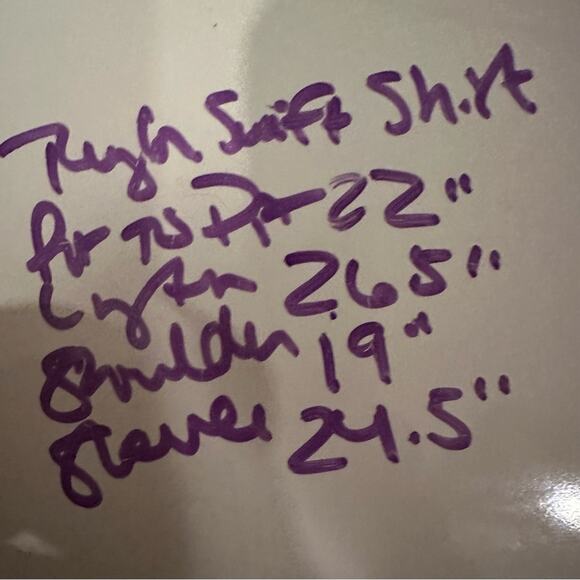 Taylor Swift Shirt
Pit to Pit 22"
Length 26.5"
Shoulder 19"
Sleeves 24.5"